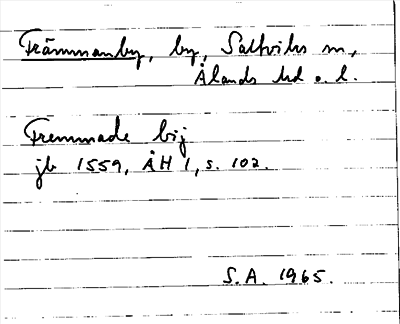 Främmanby, by, Saltviks sn,
Ålands hd o. l.
Fremmade bij
jb 1559, ÅH 1, s. 102.
S.A. 1965.